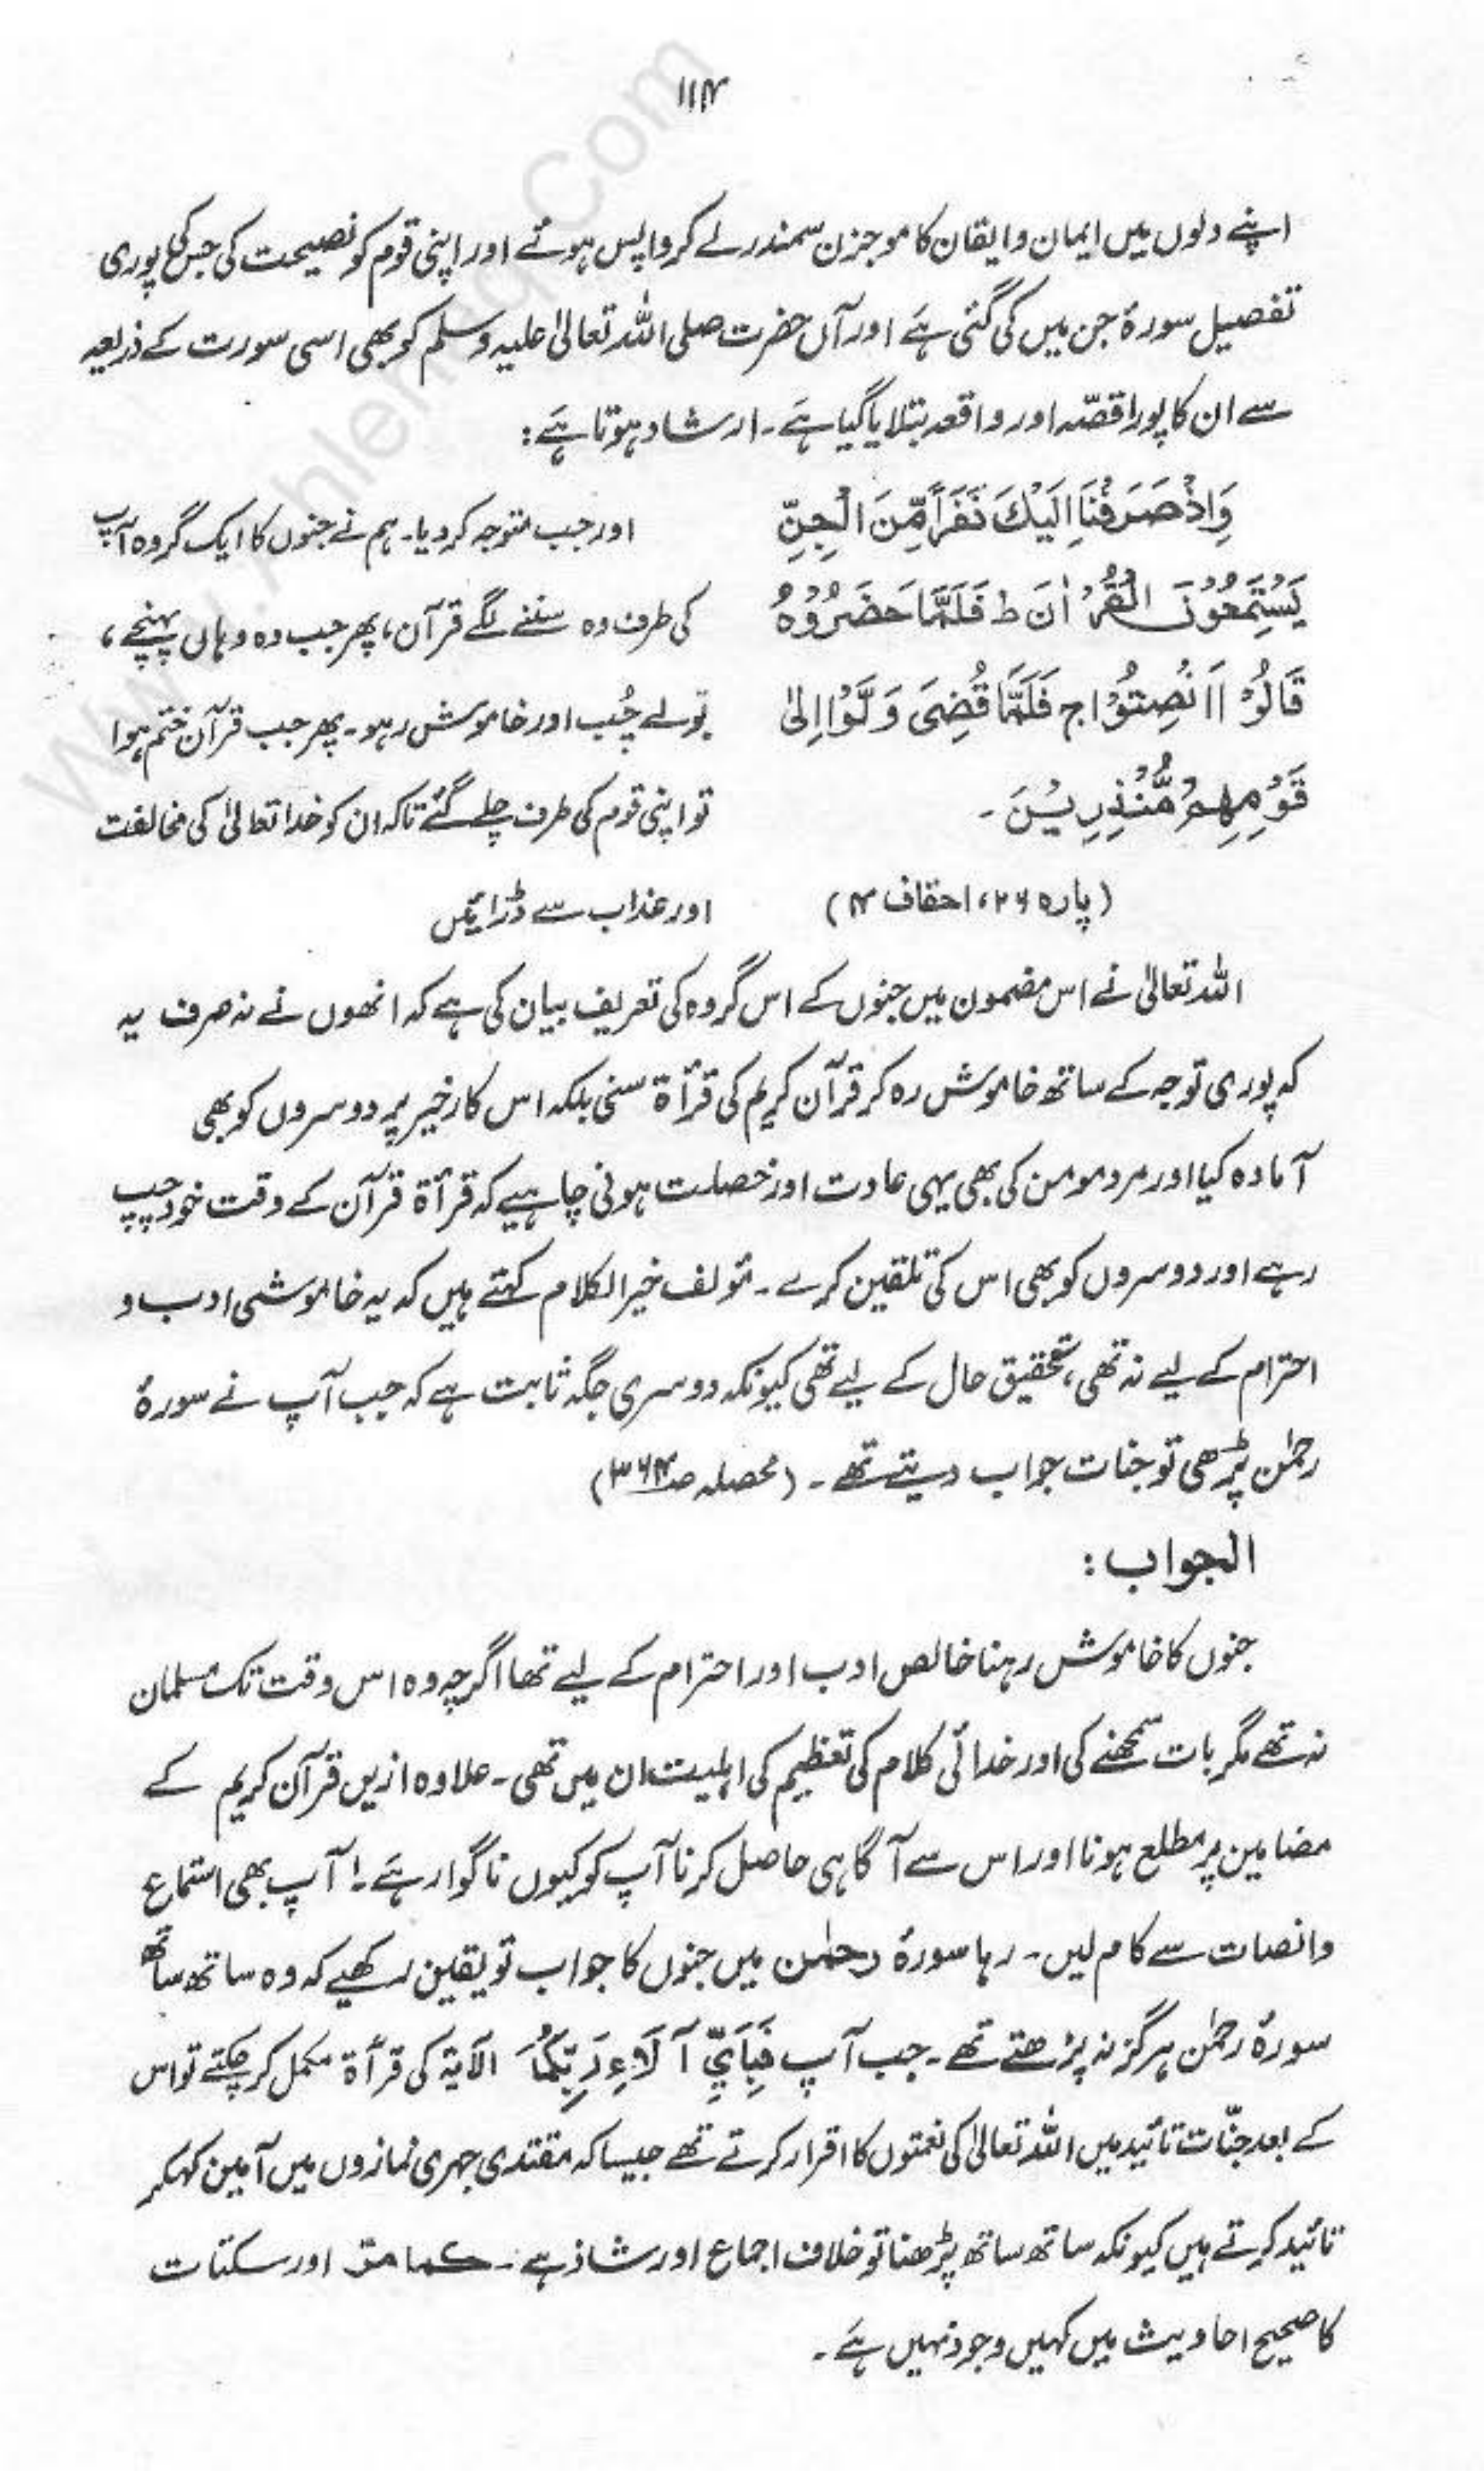 ۱۱۴
اپنے دلوں میں ایمان و ایقان کا موجزن سمندر لے کر واپس ہوئے اور اپنی قوم کو نصیحت کی جس کی پوری
تفصیل سورۂ جن میں کی گئی ہے اور آں حضرت صلی اللہ تعالیٰ علیہ وسلم کو بھی اسی سورت کے ذریعہ
سے ان کا پورا قصّہ اور واقعہ بتلایا گیا ہے۔ ارشاد ہوتا ہے:
وَاِذْ صَرَفْنَا اِلَیْكَ نَفَرًا مِّنَ الْجِنِّ
اور جب متوجہ کر دیا۔ ہم نے جنوں کا ایک گروہ آپ
یَسْتَمِعُوْنَ الْقُرْاٰنَ ط فَلَمَّا حَضَرُوْهُ
کی طرف وہ سننے لگے قرآن، پھر جب وہ وہاں پہنچے،
قَالُوْا اَنْصِتُوْا ج فَلَمَّا قُضِیَ وَلَّوْا اِلیٰ
بولے چُپ اور خاموش رہو۔ پھر جب قرآن ختم ہوا
قَوْمِهِمْ مُّنْذِرِیْنَ۔
تو اپنی قوم کی طرف چلے گئے تاکہ ان کو خدا تعالیٰ کی مخالفت
(پارہ ۲۶، احقاف ۴)
اور عذاب سے ڈرائیں
اللہ تعالیٰ نے اس مضمون میں جنوں کے اس گروہ کی تعریف بیان کی ہے کہ انھوں نے نہ صرف یہ
کہ پوری توجہ کے ساتھ خاموش رہ کر قرآن کریم کی قرأۃ سنی بلکہ اس کارِ خیر پر دوسروں کو بھی
آمادہ کیا اور مرد مومن کی بھی یہی عادت اور خصلت ہونی چاہیے کہ قرأۃ قرآن کے وقت خود چپ
رہے اور دوسروں کو بھی اس کی تلقین کرے۔ مؤلف خیر الکلام کہتے ہیں کہ یہ خاموشی ادب و
احترام کے لیے نہ تھی، تحقیق حال کے لیے تھی کیونکہ دوسری جگہ ثابت ہے کہ جب آپ نے سورۂ
رحمٰن پڑھی تو جنات جواب دیتے تھے۔ (محصلہ صـ۳۶۴)
الجواب:
جنوں کا خاموش رہنا خالص ادب اور احترام کے لیے تھا اگرچہ وہ اس وقت تک مسلمان
نہ تھے مگر بات سمجھنے کی اور خدائی کلام کی تعظیم کی اہلیت ان میں تھی۔ علاوہ ازیں قرآن کریم کے
مضامین پر مطلع ہونا اور اس سے آگاہی حاصل کرنا آپ کو کیوں ناگوار ہے؟! آپ بھی استماع
و انصات سے کام لیں۔ رہا سورۂ رحمٰن میں جنوں کا جواب تو یقین رکھیے کہ وہ ساتھ ساتھ
سورۂ رحمٰن ہرگز نہ پڑھتے تھے۔ جب آپ فَبِاَیِّ آلَاءِ رَبِّكُمَا الآیۃ کی قرأۃ مکمل کر چکتے تو اس
کے بعد جنّات تائید میں اللہ تعالیٰ کی نعمتوں کا اقرار کرتے تھے جیسا کہ مقتدی جہری نمازوں میں آمین کہکر
تائید کرتے ہیں کیونکہ ساتھ ساتھ پڑھنا تو خلاف اجماع اور شاذ ہے۔ كما مرّ اور سکتات
کا صحیح احادیث میں کہیں وجود نہیں ہے۔
www.Ahlehaq.Com